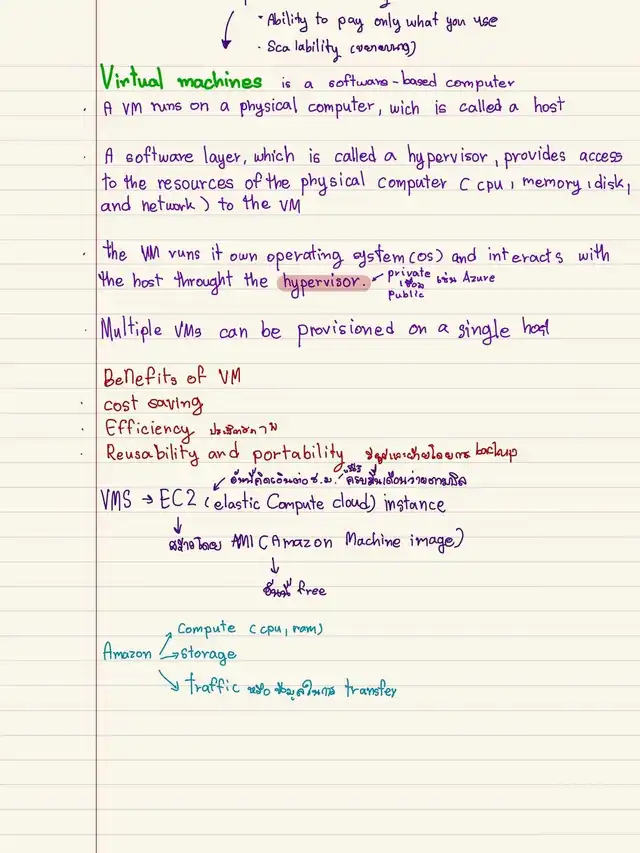 · Ability to pay only what you use
· Scalability (ขยายขนาด)
Virtual machines is a software-based computer
· A VM runs on a physical computer, wich is called a host
· A software layer, which is called a hypervisor, provides access
to the resources of the physical computer (cpu, memory, disk,
and network) to the VM
· the VM runs it own operating system (OS) and interacts with
the host throught the hypervisor. private
เชื่อม เช่น Azure
public
· Multiple VMs can be provisioned on a single host
Benefits of VM
· cost saving
· Efficiency ประสิทธิภาพ
· Reusability and portability backup
อันนี้คิดเงินต่อ ช.ม.
VMS → EC2 (elastic Compute cloud) instance
สร้างโดย AMI (Amazon Machine image)
อันนี้ free
Compute (cpu, ram)
Amazon → storage
traffic หรือ ข้อมูลในการ transfer